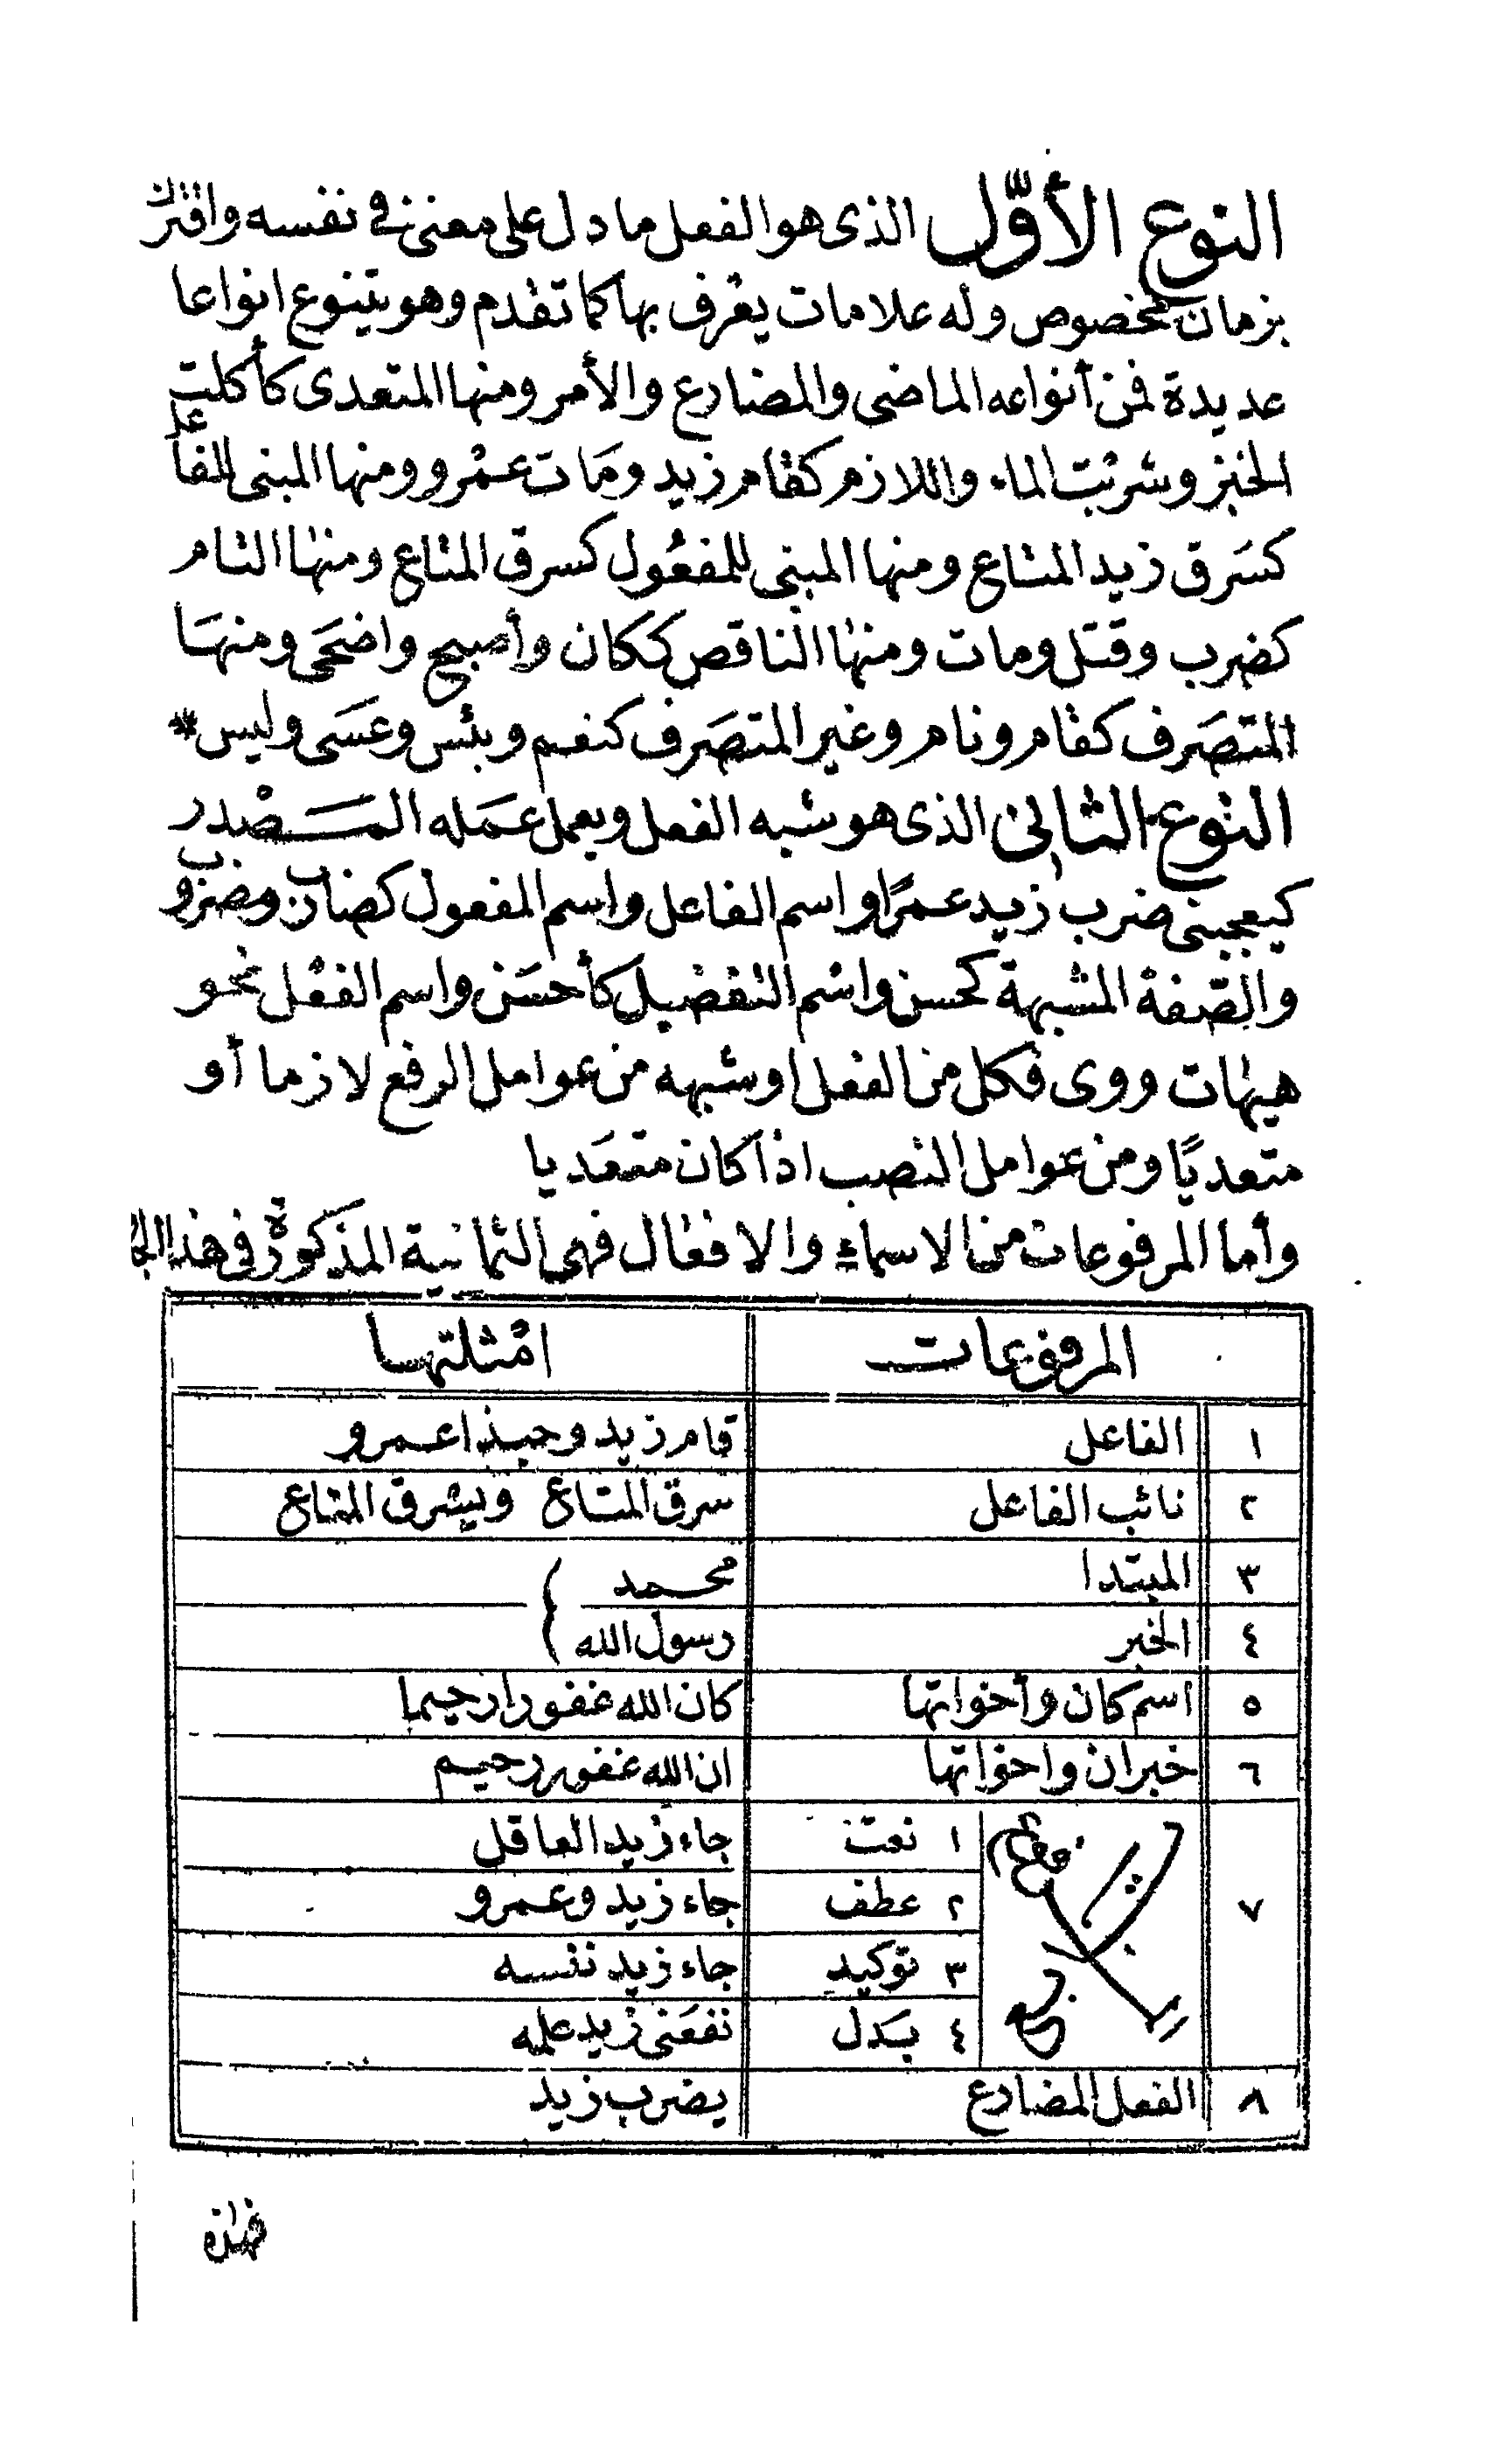 النوع الأوّل الذى هو الفعل ما دل على معنى فى نفسه واقترن
بزمان مخصوص وله علامات يعرف بها كما تقدم وهو يتنوع انواعا
عديدة فمن أنواعه الماضى والمضارع والأمر ومنها المتعدى كأكلت
الخبز وشربت الماء واللازم كقام زيد ومَات عمْرو ومنها المبنى للفاعل
كسَرق زيد المتاع ومنها المبنى للمفعُول كسرق المتاع ومنها التام
كضرب وقتل ومات ومنها الناقص ككان وأصبح واضحَى ومنهَا
المتصَرف كقام ونام وغير المتصَرف كنعم وبئس وعَسَى وليس *
النوع الثانى الذى هو شبه الفعل ويعمل عمَله المَصْدر
كيعجبنى ضرب زيد عمرًا واسم الفاعل واسم المفعول كضارب ومضروب
والصّفة المشبهة كحسن واسْم التفضيل كأحسَن واسم الفعْل نحو
هيهات ووى فكل من الفعل او شبهه من عوامل الرفع لازما أو
متعديًا ومن عوامل النصب اذا كان متعَديا
وأما المرفوعات من الاسماء والافعال فهى الثمانية المذكورة فى هذا
المرفوعات امْثلتها
١ الفاعل قام زيد وحبذا عمرو
٢ نائب الفاعل سرق المتاع ويسْرق المتاع
٣ المبتدا محمد
٤ الخبر رسول الله
٥ اسم كان وأخواتها كان الله غفورا رحيما
٦ خبر ان واخواتها ان الله غفور رحيم
٧
١ نعت جاء زيد العاقل
٢ عطف جاء زيد وعمرو
٣ توكيد جاء زيد نفسه
٤ بَدل نفعَنى زيد علمه
٨ الفعل المضارع يضرب زيد
فهذه